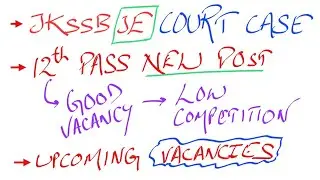 → JKSSB JE COURT CASE
→ 12th PASS NEW POST
↳ GOOD VACANCY → LOW COMPETITION
→ UPCOMING VACANCIES